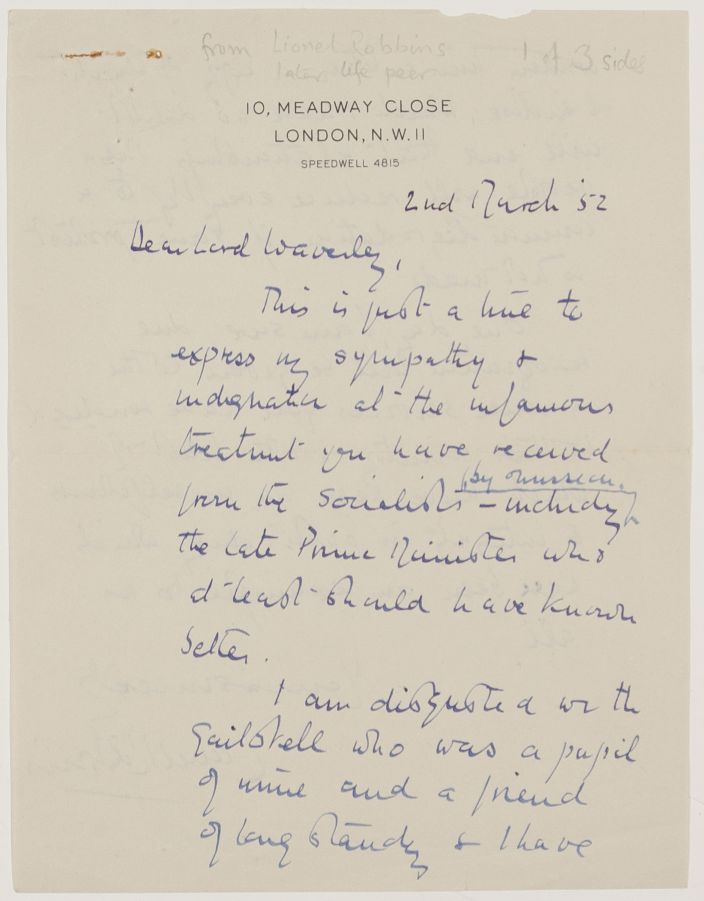 from Lionel Robbins 1st 3 sides
later life peer
10, MEADWAY CLOSE
LONDON, N.W. 11
SPEEDWELL 4815
2nd March '52
Dear Lord Waverley,
This is just a line to
express my sympathy &
indignation at the infamous
treatment you have received
by omission
from the Socialists – including
the late Prime Minister who
at least should have known
better.
I am disgusted with
Gaitskell who was a pupil
of mine and a friend
of long standing & I have